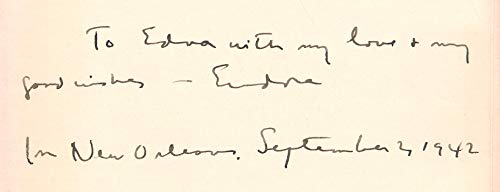 To Edna with my love & my
good wishes — Eudora
In New Orleans. September 2, 1942